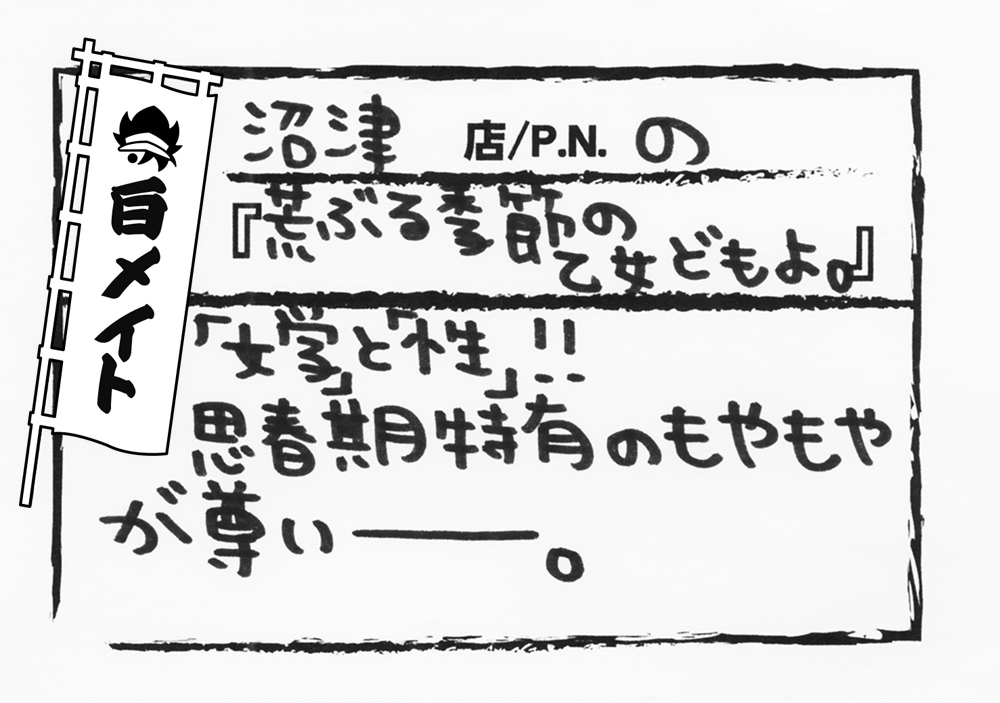 自メイト
沼津 店/P.N. の
『荒ぶる季節の
乙女どもよ。』
「文学」と「性」!!
思春期特有のもやもや
が尊い――。